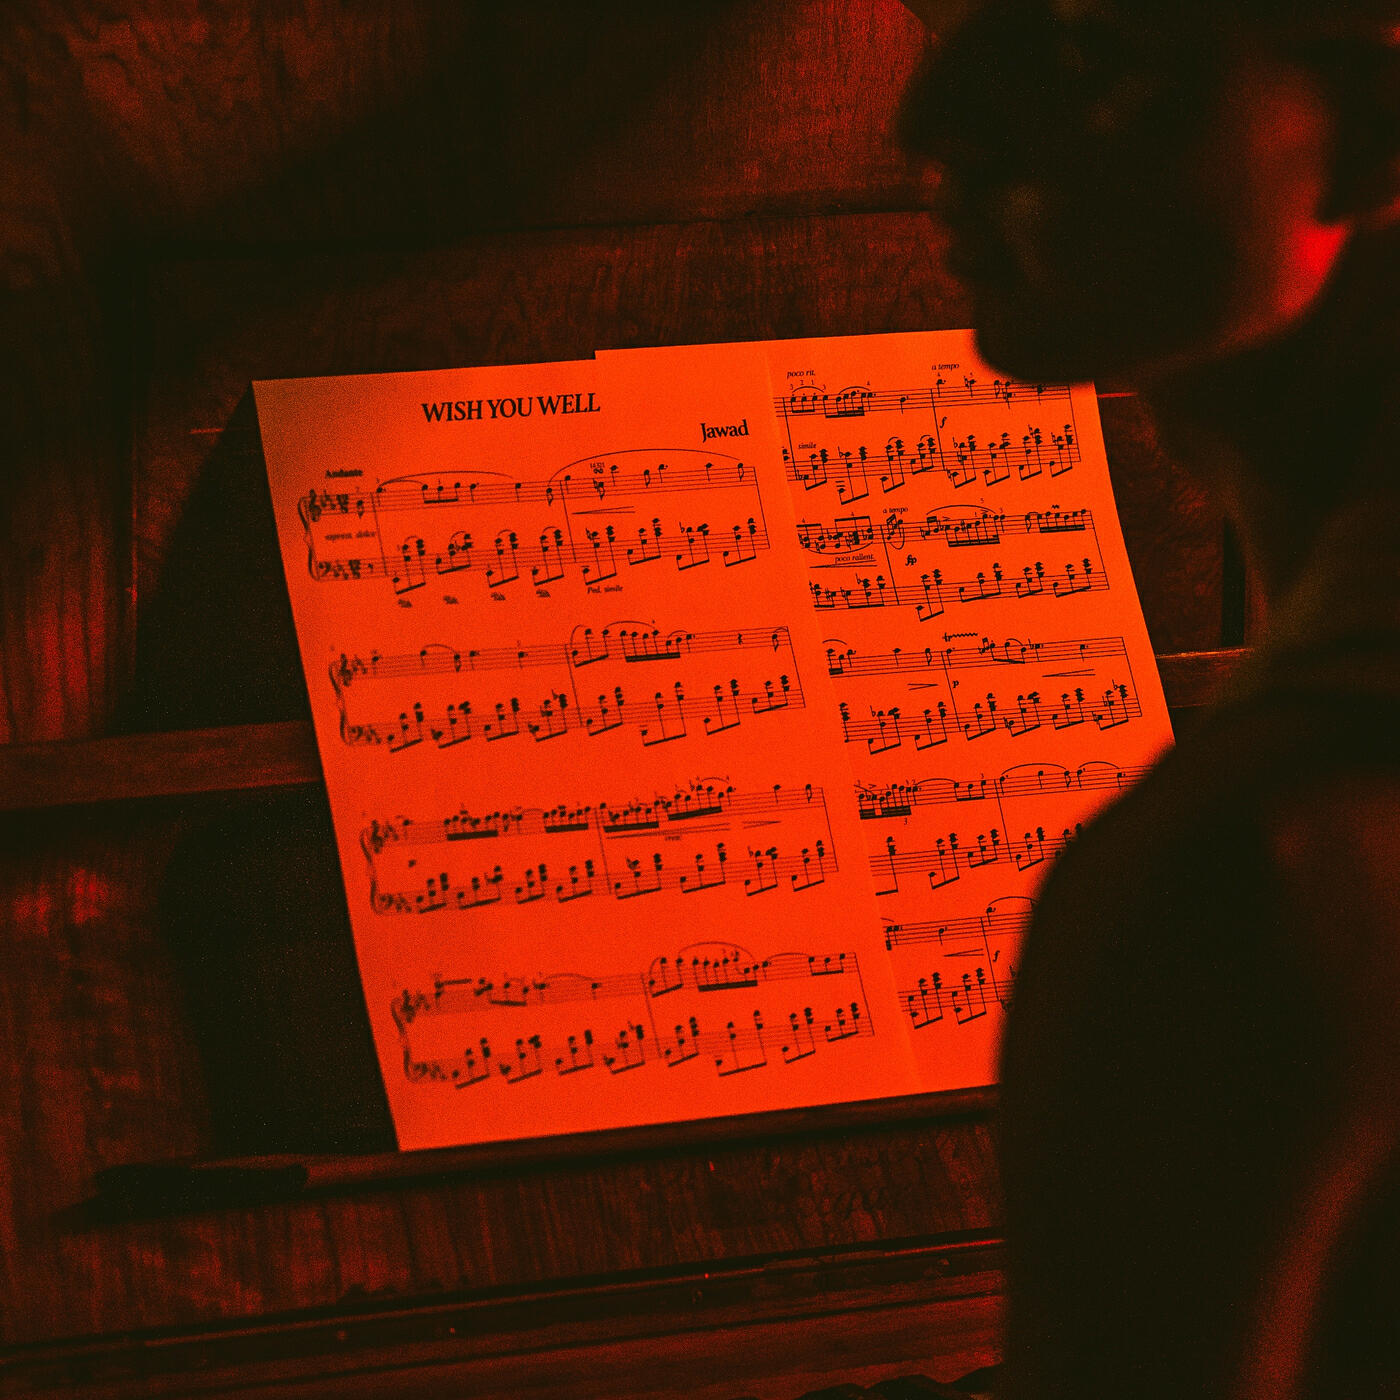 WISH YOU WELL
Jawad
Andante
espress. dolce
14321
Ped. simile
cresc.
poco rit.
a tempo
3 2 1 3 4
simile
f
a tempo
poco rallent.
fp
tr
p
3
f